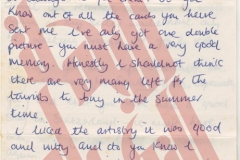 you
know out of all the cards you have
sent me I've only got one double
picture - you must have a very good
memory. Honestly I should not think
there are very many left for the
tourists to buy in the summer
time.
I liked the artistry it was good
and nutty and do you know I